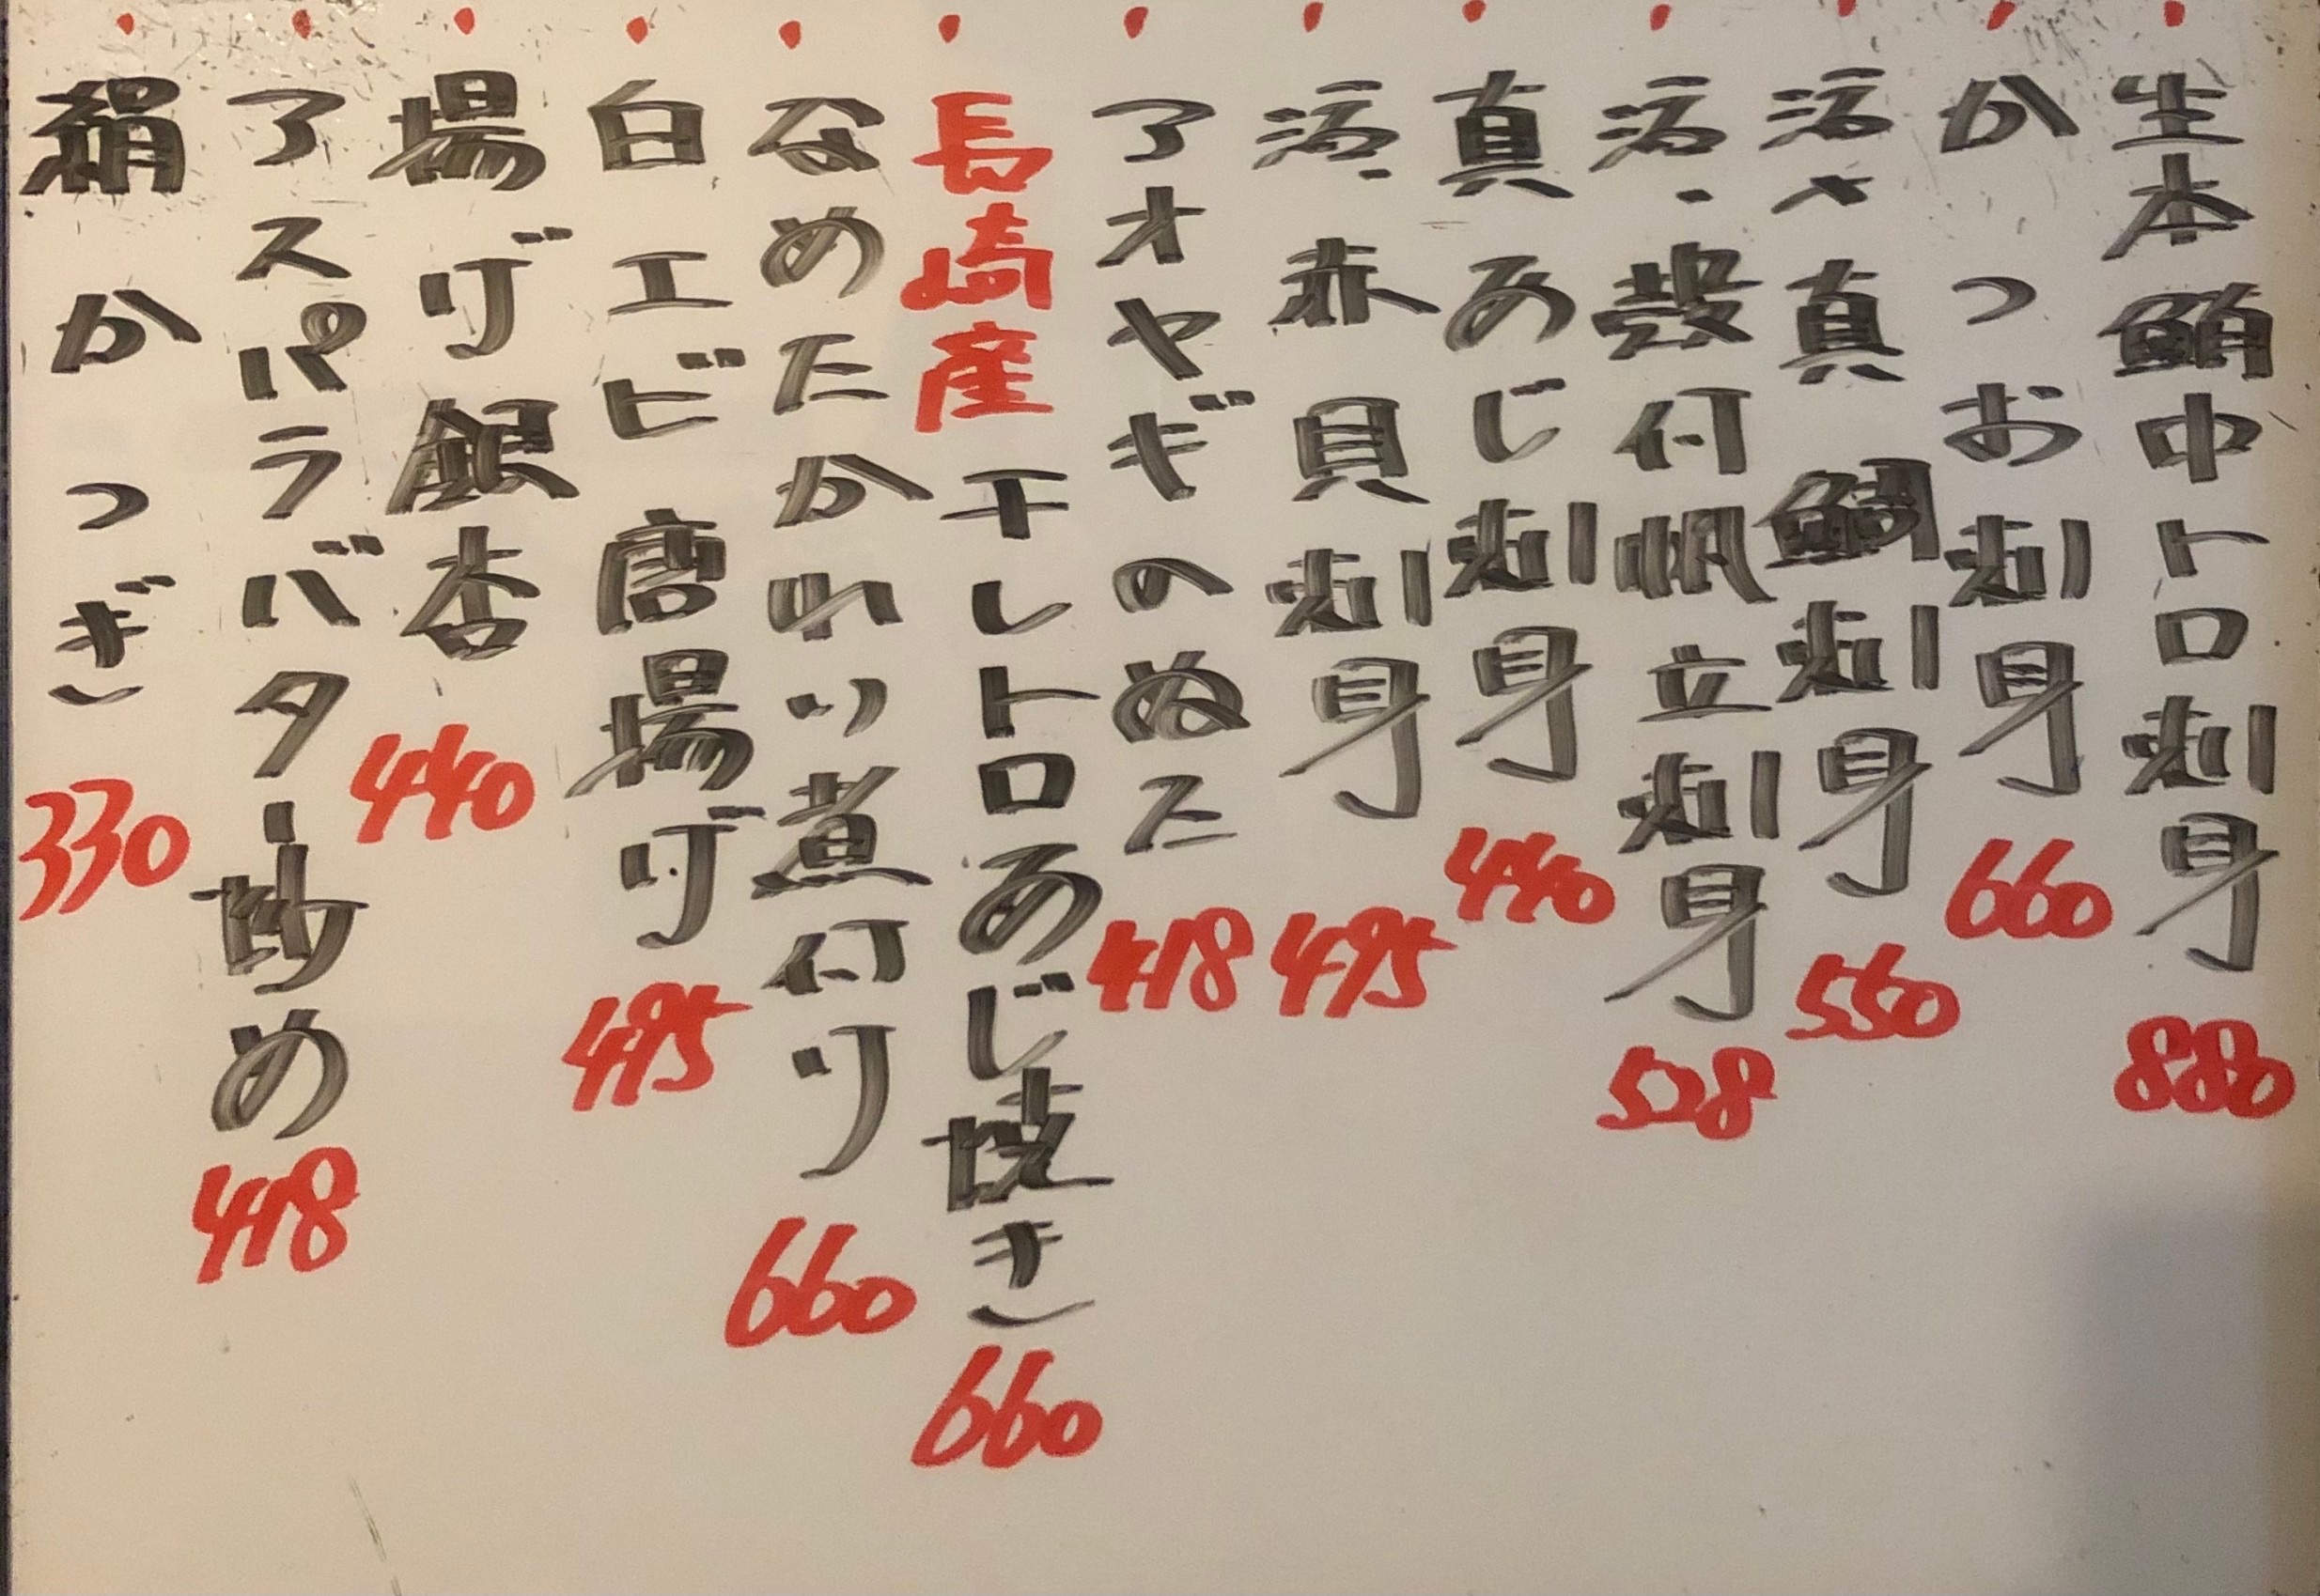 生本鮪中トロ刺身 880
かつお刺身 660
活〆真鯛刺身 550
活・殻付帆立刺身 528
真あじ刺身 440
活・赤貝刺身 495
アオヤギのぬた 418
長崎産干しトロあじ焼き 660
なめたかれい煮付け 660
白エビ唐揚げ 495
揚げ銀杏 440
アスパラバター炒め 418
絹かつぎ 330